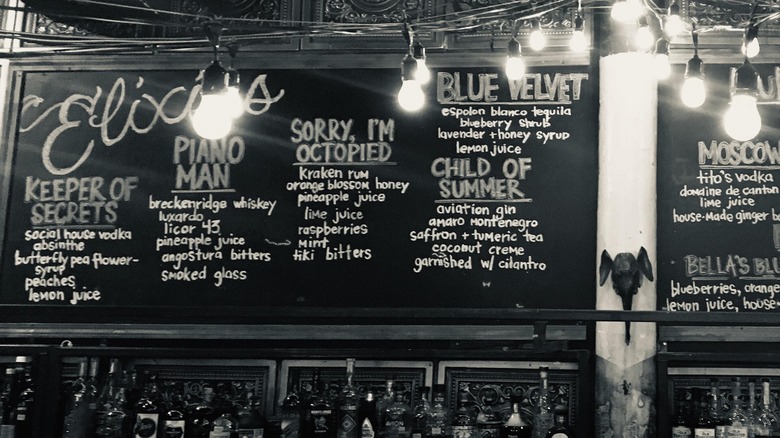 Elixirs
KEEPER OF
SECRETS
social house vodka
absinthe
butterfly pea flower-
syrup
peaches
lemon juice
PIANO
MAN
breckenridge whiskey
luxardo
licor 43
pineapple juice
angostura bitters
smoked glass
SORRY, I'M
OCTOPIED
Kraken rum
orange blossom honey
pineapple juice
lime juice
raspberries
mint
tiki bitters
BLUE VELVET
espolon blanco tequila
blueberry shrub
lavender + honey syrup
lemon juice
CHILD OF
SUMMER
aviation gin
amaro montenegro
saffron + tumeric tea
coconut creme
garnished w/ cilantro
MOSCOW
tito's vodka
domaine de canton
lime juice
house-made ginger
BELLA'S
blueberries, orange
lemon juice, house-